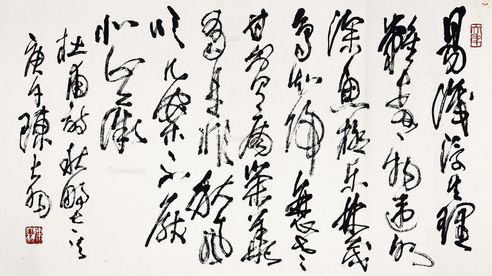 易識浮生理
難教一物違水
深魚極樂林茂
鳥知歸衰老
甘貧病榮華
有是非秋風
吹几杖不厭
北山薇
杜甫詩秋野
庚午陳大羽